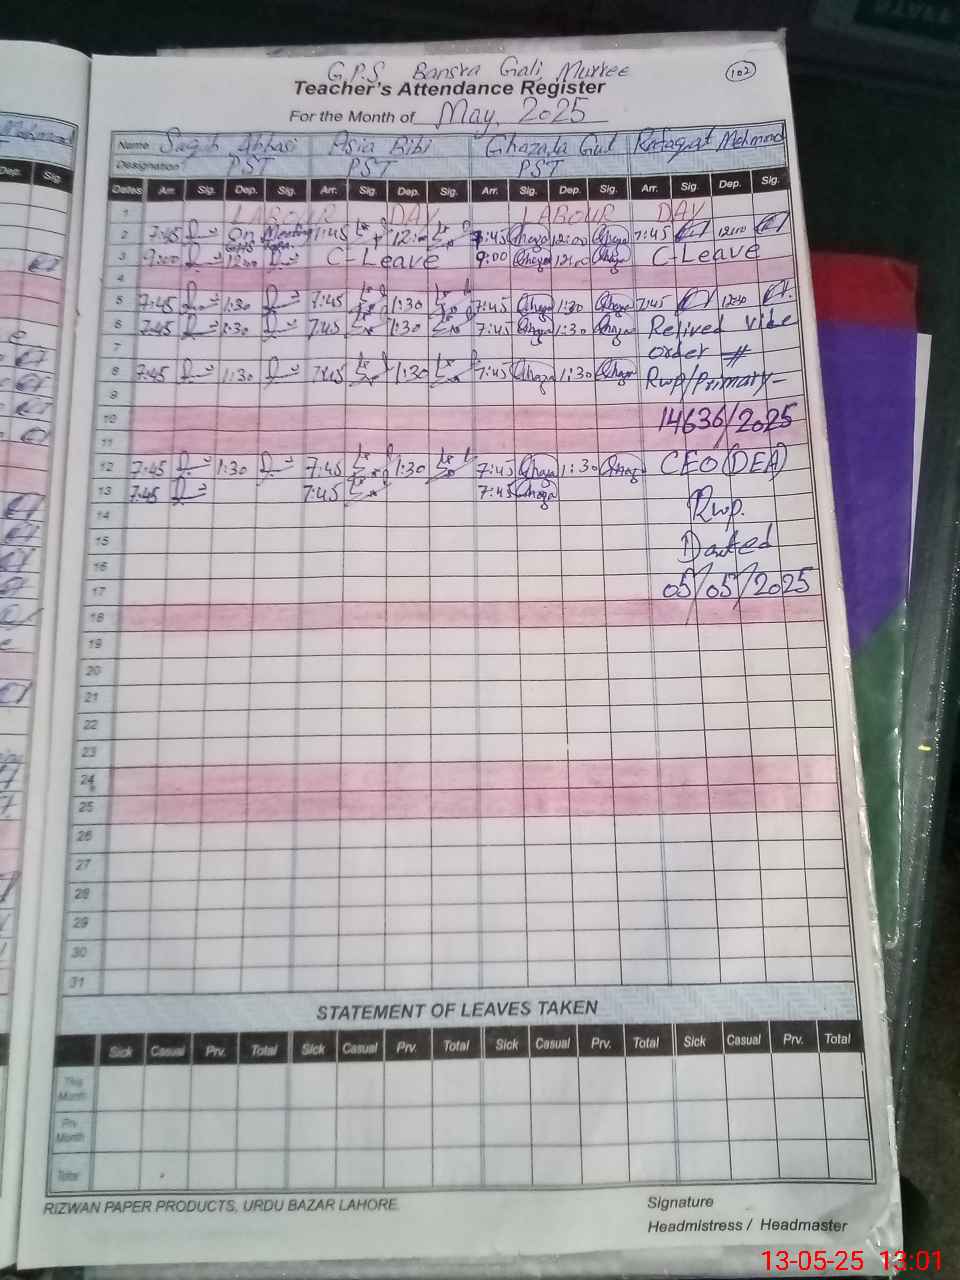 G.P.S Bansra Gali Murree
102
Teacher's Attendance Register
For the Month of May, 2025
Name Saqib Abbasi Asia Bibi Ghazala Gul Rafaqat Mehmood
Designation PST PST PST
Dates Arr. Sig. Dep. Sig. Arr. Sig. Dep. Sig. Arr. Sig. Dep. Sig. Arr. Sig. Dep. Sig.
1 LABOUR DAY LABOUR DAY
2 7:45 On Meeting 7:45 12:00 7:45 Ghaza 12:00 Ghaza 7:45 12:00
3 9:00 12:00 C-Leave 9:00 Ghaza 12:00 Ghaza C-Leave
4
5 7:45 1:30 7:45 1:30 7:45 Ghaza 1:30 Ghaza 7:45 12:00
6 7:45 1:30 7:45 1:30 7:45 Ghaza 1:30 Ghaza Retired vide
7 order #
8 7:45 1:30 7:45 1:30 7:45 Ghaza 1:30 Ghaza Rwp/Primary-
9
10 14636/2025
11
12 7:45 1:30 7:45 1:30 7:45 Ghaza 1:30 Ghaza CEO (DEA)
13 7:45 7:45 7:45 Ghaza
14 Rwp.
15 Dated
16
17 05/05/2025
18
19
20
21
22
23
24
25
26
27
28
29
30
31
STATEMENT OF LEAVES TAKEN
Sick Casual Prv. Total Sick Casual Prv. Total Sick Casual Prv. Total Sick Casual Prv. Total
This Month
Prv. Month
Total
RIZWAN PAPER PRODUCTS, URDU BAZAR LAHORE.
Signature
Headmistress / Headmaster
13-05-25 13:01